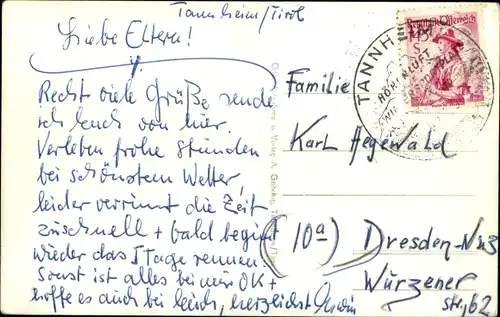 Tannheim/Tirol
Liebe Eltern!
Recht viele Grüße sende
ich Euch von hier.
Verleben frohe Stunden
bei schönstem Wetter,
leider verrinnt die Zeit
zuschnell + bald beginnt
wieder das Tage rennen.
Sonst ist alles bei mir OK +
hoffe es auch bei Euch, herzlichst Erwin
TANNHEIM
HÖHENLUFT
Republik Österreich
Familie
Karl Hegewald
(10a) Dresden-N23
Würzener
str, 62